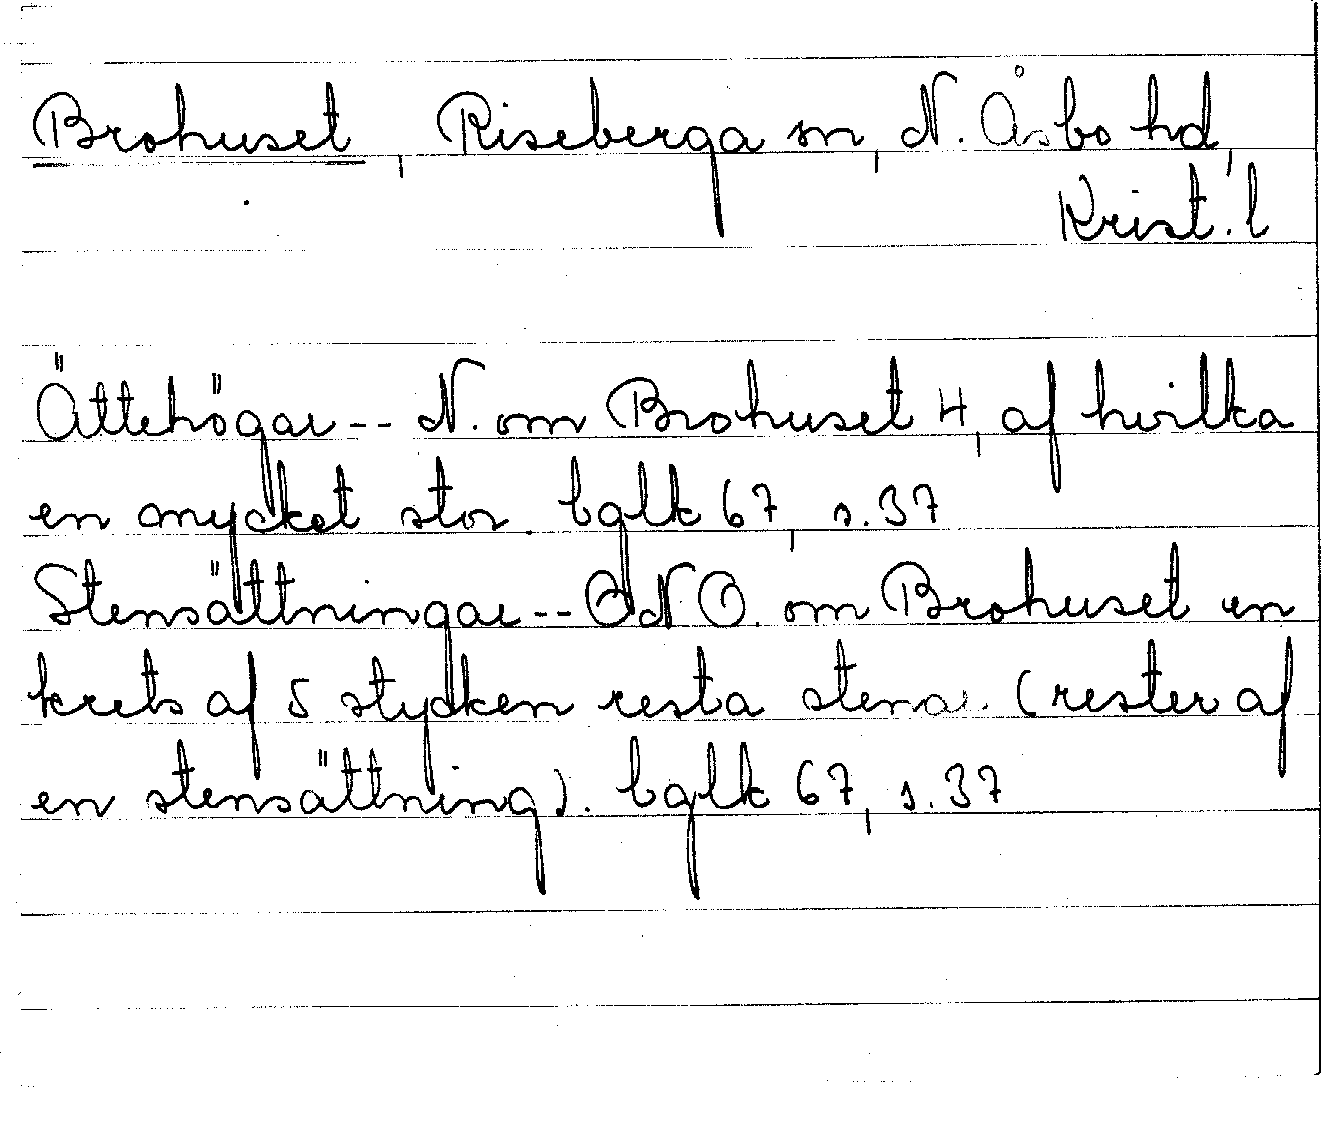 Brohuset, Riseberga sn, N. Åsbo hd,
Krist. l
Ättehögar -- N. om Brohuset 4, af hvilka
en mycket stor. bglk 67, s. 37
Stensättningar -- ONO. om Brohuset en
krets af 5 stycken resta stenar. (rester af
en stensättning). bglk 67, s. 37